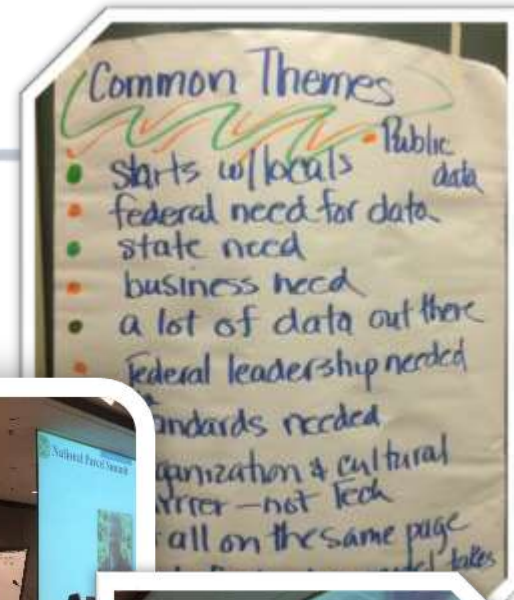 Common Themes
Public
data
starts w/locals
federal need for data
state need
business need
a lot of data out there
federal leadership needed
andards needed
ganization & cultural
rrer - not Tech
all on the same page
takes
National Parcel Summit